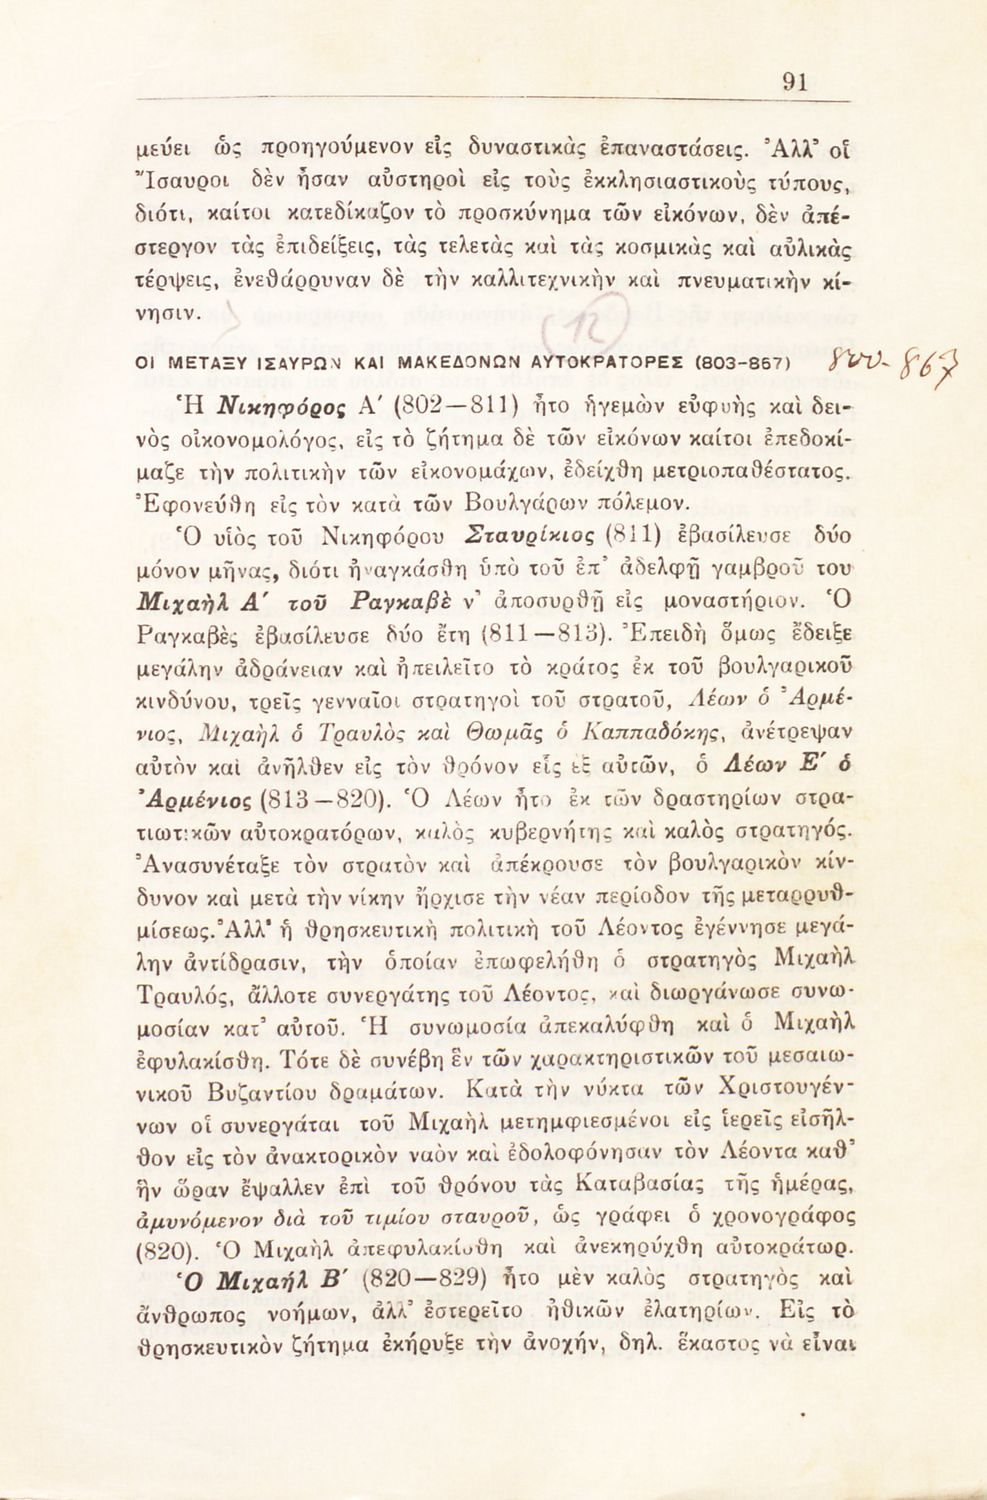 91
μεύει ὡς προηγούμενον εἰς δυναστικὰς ἐπαναστάσεις. Ἀλλ’ οἱ
Ἴσαυροι δὲν ἦσαν αὐστηροὶ εἰς τοὺς ἐκκλησιαστικοὺς τύπους,
διότι, καίτοι κατεδίκαζον τὸ προσκύνημα τῶν εἰκόνων, δὲν ἀπέ-
στεργον τὰς ἐπιδείξεις, τὰς τελετὰς καὶ τὰς κοσμικὰς καὶ αὐλικὰς
τέρψεις, ἐνεθάρρυναν δὲ τὴν καλλιτεχνικὴν καὶ πνευματικὴν κί-
νησιν.
12
ΟΙ ΜΕΤΑΞΥ ΙΣΑΥΡΩΝ ΚΑΙ ΜΑΚΕΔΟΝΩΝ ΑΥΤΟΚΡΑΤΟΡΕΣ (803-867) 800-867
Ἡ Νικηφόρος Α′ (802—811) ἦτο ἡγεμὼν εὐφυὴς καὶ δει-
νὸς οἰκονομολόγος, εἰς τὸ ζήτημα δὲ τῶν εἰκόνων καίτοι ἐπεδοκί-
μαζε τὴν πολιτικὴν τῶν εἰκονομάχων, ἐδείχθη μετριοπαθέστατος.
Ἐφονεύθη εἰς τὸν κατὰ τῶν Βουλγάρων πόλεμον.
Ὁ υἱὸς τοῦ Νικηφόρου Σταυρίκιος (811) ἐβασίλευσε δύο
μόνον μῆνας, διότι ἠναγκάσθη ὑπὸ τοῦ ἐπ’ ἀδελφῇ γαμβροῦ του
Μιχαὴλ Α′ τοῦ Ραγκαβὲ ν’ ἀποσυρθῇ εἰς μοναστήριον. Ὁ
Ραγκαβὲς ἐβασίλευσε δύο ἔτη (811—813). Ἐπειδὴ ὅμως ἔδειξε
μεγάλην ἀδράνειαν καὶ ἠπειλεῖτο τὸ κράτος ἐκ τοῦ βουλγαρικοῦ
κινδύνου, τρεῖς γενναῖοι στρατηγοὶ τοῦ στρατοῦ, Λέων ὁ Ἀρμέ-
νιος, Μιχαὴλ ὁ Τραυλὸς καὶ Θωμᾶς ὁ Καππαδόκης, ἀνέτρεψαν
αὐτὸν καὶ ἀνῆλθεν εἰς τὸν θρόνον εἷς ἐξ αὐτῶν, ὁ Λέων Ε′ ὁ
Ἀρμένιος (813—820). Ὁ Λέων ἦτο ἐκ τῶν δραστηρίων στρα-
τιωτικῶν αὐτοκρατόρων, καλὸς κυβερνήτης καὶ καλὸς στρατηγός.
Ἀνασυνέταξε τὸν στρατὸν καὶ ἀπέκρουσε τὸν βουλγαρικὸν κίν-
δυνον καὶ μετὰ τὴν νίκην ἤρχισε τὴν νέαν περίοδον τῆς μεταρρυθ-
μίσεως. Ἀλλ’ ἡ θρησκευτικὴ πολιτικὴ τοῦ Λέοντος ἐγέννησε μεγά-
λην ἀντίδρασιν, τὴν ὁποίαν ἐπωφελήθη ὁ στρατηγὸς Μιχαὴλ
Τραυλός, ἄλλοτε συνεργάτης τοῦ Λέοντος, καὶ διωργάνωσε συνω-
μοσίαν κατ’ αὐτοῦ. Ἡ συνωμοσία ἀπεκαλύφθη καὶ ὁ Μιχαὴλ
ἐφυλακίσθη. Τότε δὲ συνέβη ἓν τῶν χαρακτηριστικῶν τοῦ μεσαιω-
νικοῦ Βυζαντίου δραμάτων. Κατὰ τὴν νύκτα τῶν Χριστουγέν-
νων οἱ συνεργάται τοῦ Μιχαὴλ μετημφιεσμένοι εἰς ἱερεῖς εἰσῆλ-
θον εἰς τὸν ἀνακτορικὸν ναὸν καὶ ἐδολοφόνησαν τὸν Λέοντα καθ’
ἣν ὥραν ἔψαλλεν ἐπὶ τοῦ θρόνου τὰς Καταβασίας τῆς ἡμέρας,
ἀμυνόμενον διὰ τοῦ τιμίου σταυροῦ, ὡς γράφει ὁ χρονογράφος
(820). Ὁ Μιχαὴλ ἀπεφυλακίσθη καὶ ἀνεκηρύχθη αὐτοκράτωρ.
Ὁ Μιχαήλ Β′ (820—829) ἦτο μὲν καλὸς στρατηγὸς καὶ
ἄνθρωπος νοήμων, ἀλλ’ ἐστερεῖτο ἠθικῶν ἐλατηρίων. Εἰς τὸ
θρησκευτικὸν ζήτημα ἐκήρυξε τὴν ἀνοχήν, δηλ. ἕκαστος νὰ εἶναι